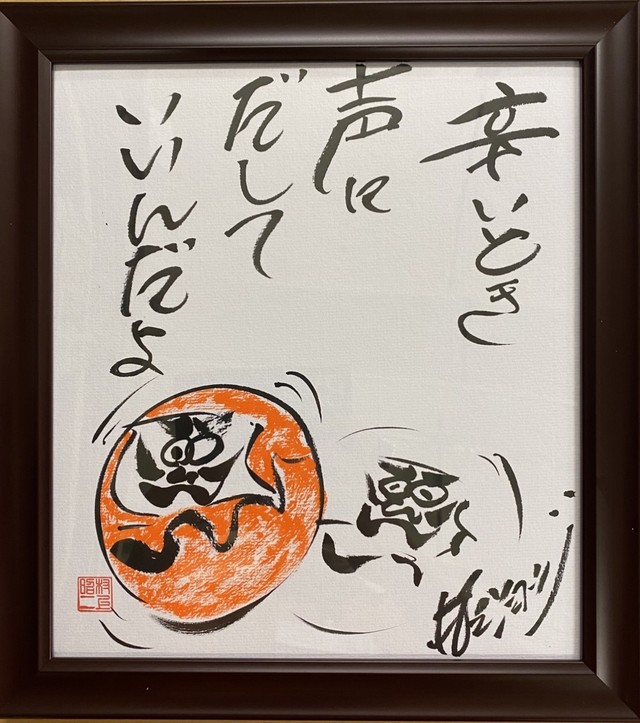 辛いとき
声に
だして
いいんだよ